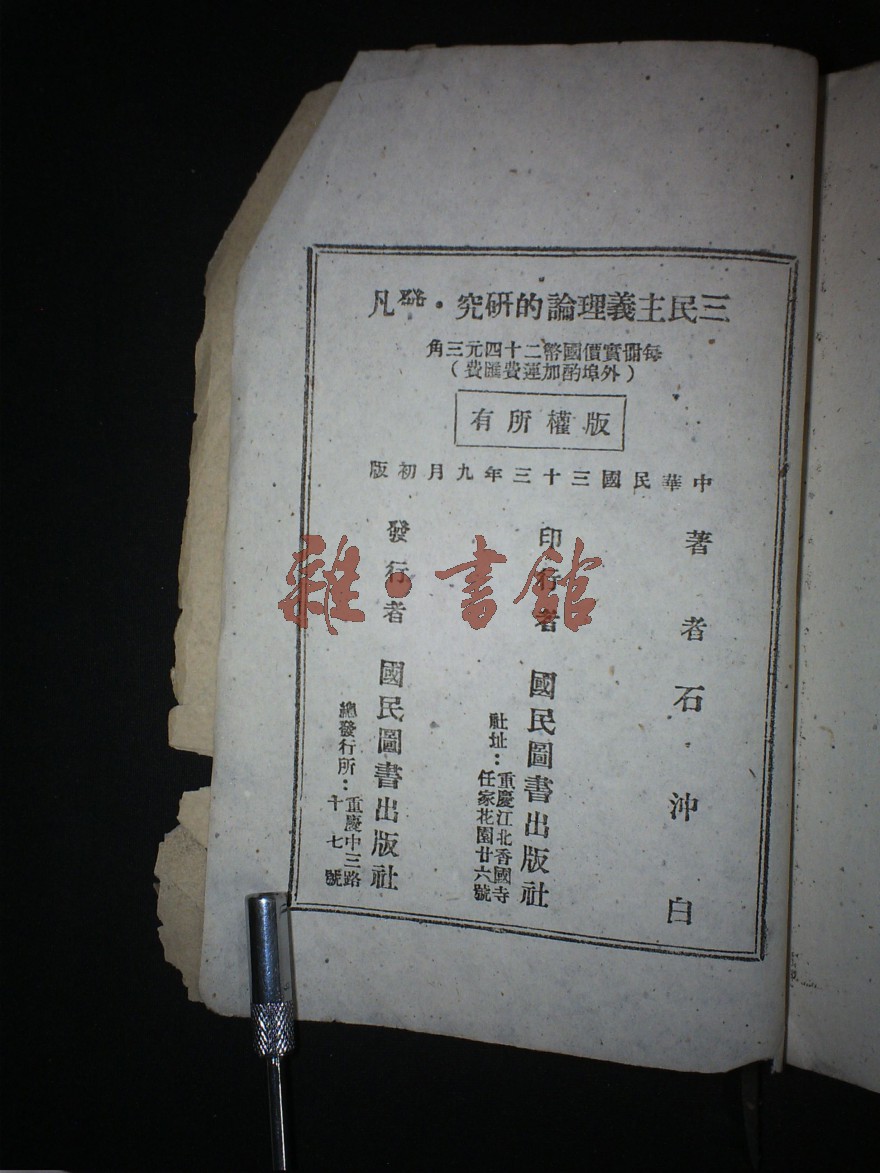 三民主義理論的研究・凡
每冊實價國幣二十四元三角
（外埠酌加運費匯費）
版權所有
中華民國三十三年九月初版
著者 石沖白
印行者 國民圖書出版社
社址：重慶江北香國寺
任家花園廿六號
發行者 國民圖書出版社
總發行所：重慶中三路
十七號
雜・書館